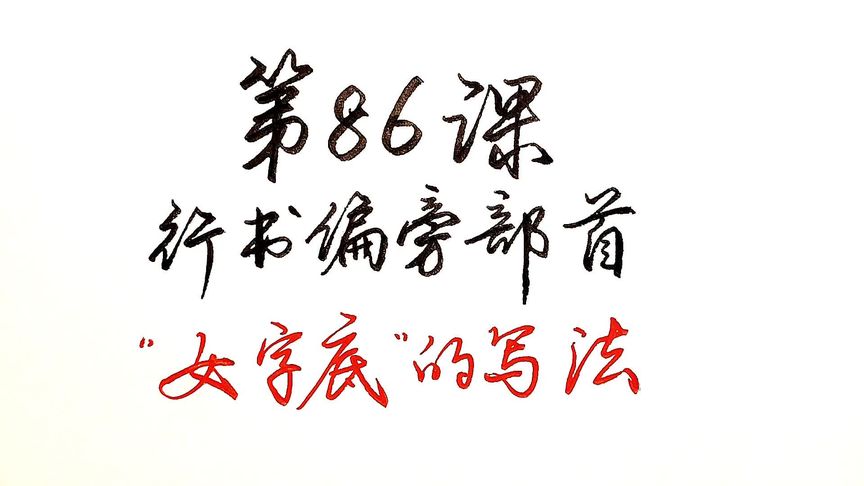 第86课
行书偏旁部首
“女字底”的写法